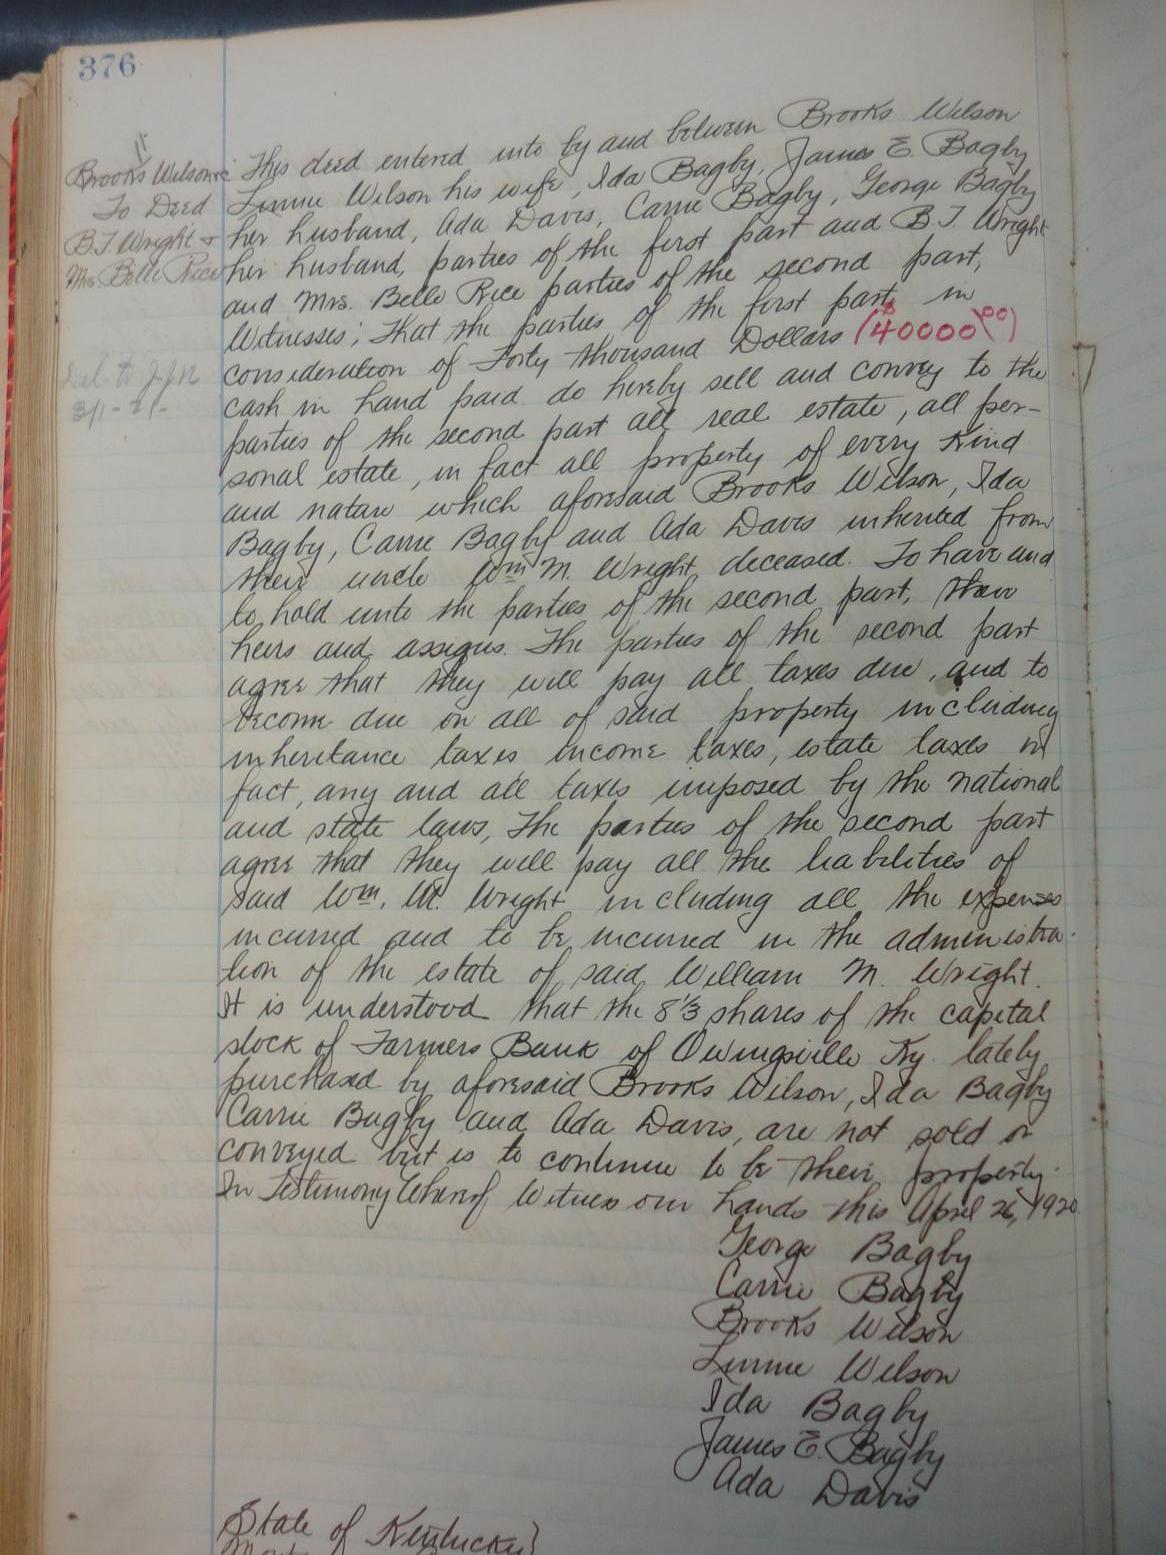 376
Brooks Wilson &c
To Deed
B.T. Wright &
Mrs. Belle Rice
Del. to J.J.N.
3/1-21-
This deed entered into by and between Brooks Wilson
Linnie Wilson his wife, Ida Bagby, James E. Bagby
her husband, Ada Davis, Carrie Bagby, George Bagby
her husband, parties of the first part and B.T. Wright
and Mrs. Belle Rice parties of the second part,
Witnesses; That the parties of the first part, in
consideration of Forty thousand Dollars ($40000.00)
cash in hand paid do hereby sell and convey to the
parties of the second part all real estate, all per-
sonal estate, in fact all property of every kind
and nature which aforesaid Brooks Wilson, Ida
Bagby, Carrie Bagby and Ada Davis inherited from
their uncle Wm M. Wright, deceased. To have and
to hold unto the parties of the second part, their
heirs and assigns. The parties of the second part
agree that they will pay all taxes due, and to
become due on all of said property including
inheritance taxes income taxes, estate taxes in
fact, any and all taxes imposed by the national
and state laws, The parties of the second part
agree that they will pay all the liabilities of
said Wm. M. Wright including all the expenses
incurred and to be incurred in the administra-
tion of the estate of said William M. Wright.
It is understood that the 8 1/3 shares of the capital
stock of Farmers Bank of Owingsville Ky. lately
purchased by aforesaid Brooks Wilson, Ida Bagby
Carrie Bagby and Ada Davis, are not sold or
conveyed but is to continue to be their property.
In Testimony Whereof Witness our hands this April 26, 1920.
George Bagby
Carrie Bagby
Brooks Wilson
Linnie Wilson
Ida Bagby
James E. Bagby
Ada Davis
State of Kentucky}